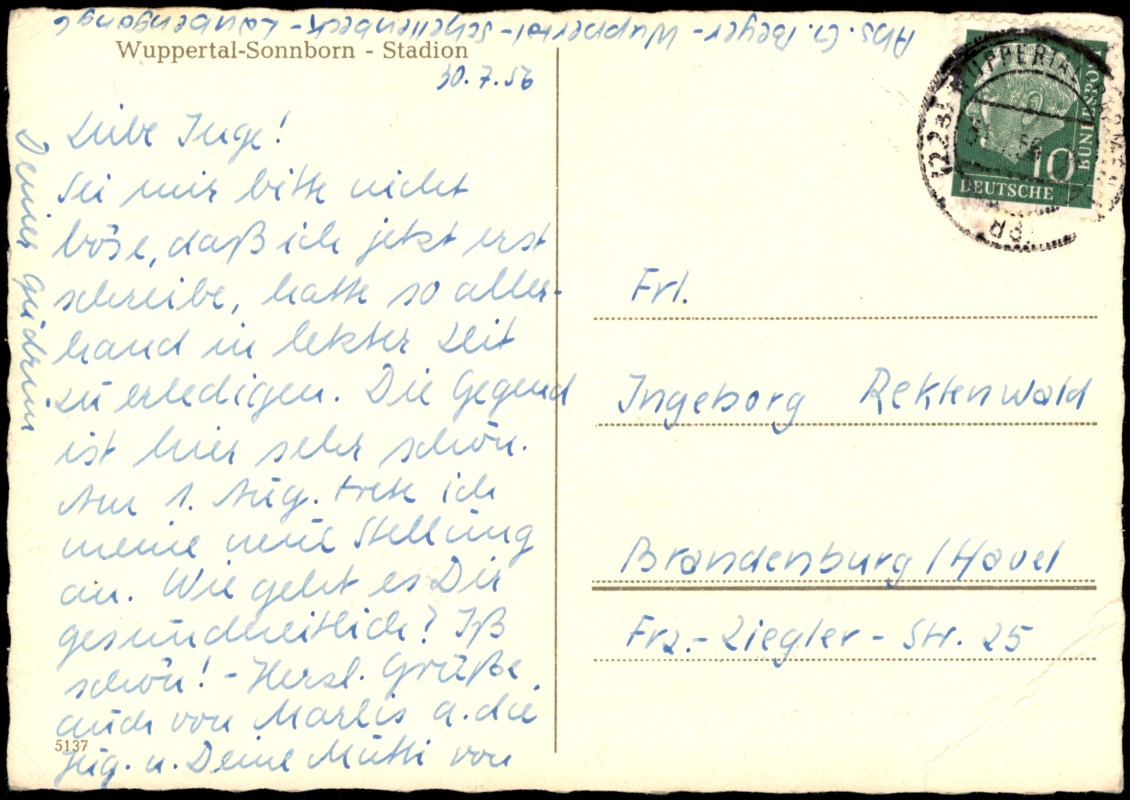 Abs. G. Beyer - Wuppertal - Schellenbeck - Laubengang 6
Wuppertal-Sonnborn - Stadion
30.7.56
Liebe Inge!
Sei mir bitte nicht
böse, daß ich jetzt erst
schreibe, hatte so aller-
hand in letzter Zeit
zu erledigen. Die Gegend
ist hier sehr schön.
Am 1. Aug. trete ich
meine neue Stellung
an. Wie geht es Dir
gesundheitlich? Iß
schön! - Herzl. Grüße
auch von Marlis a. die
Jug. u. Deine Mutti von
Deiner Gudrun
5137
(22a)
WUPPERTAL
10
DEUTSCHE
BUNDESPOST
Frl.
Ingeborg Rektenwald
Brandenburg/Havel
Frz.-Ziegler-Str. 25